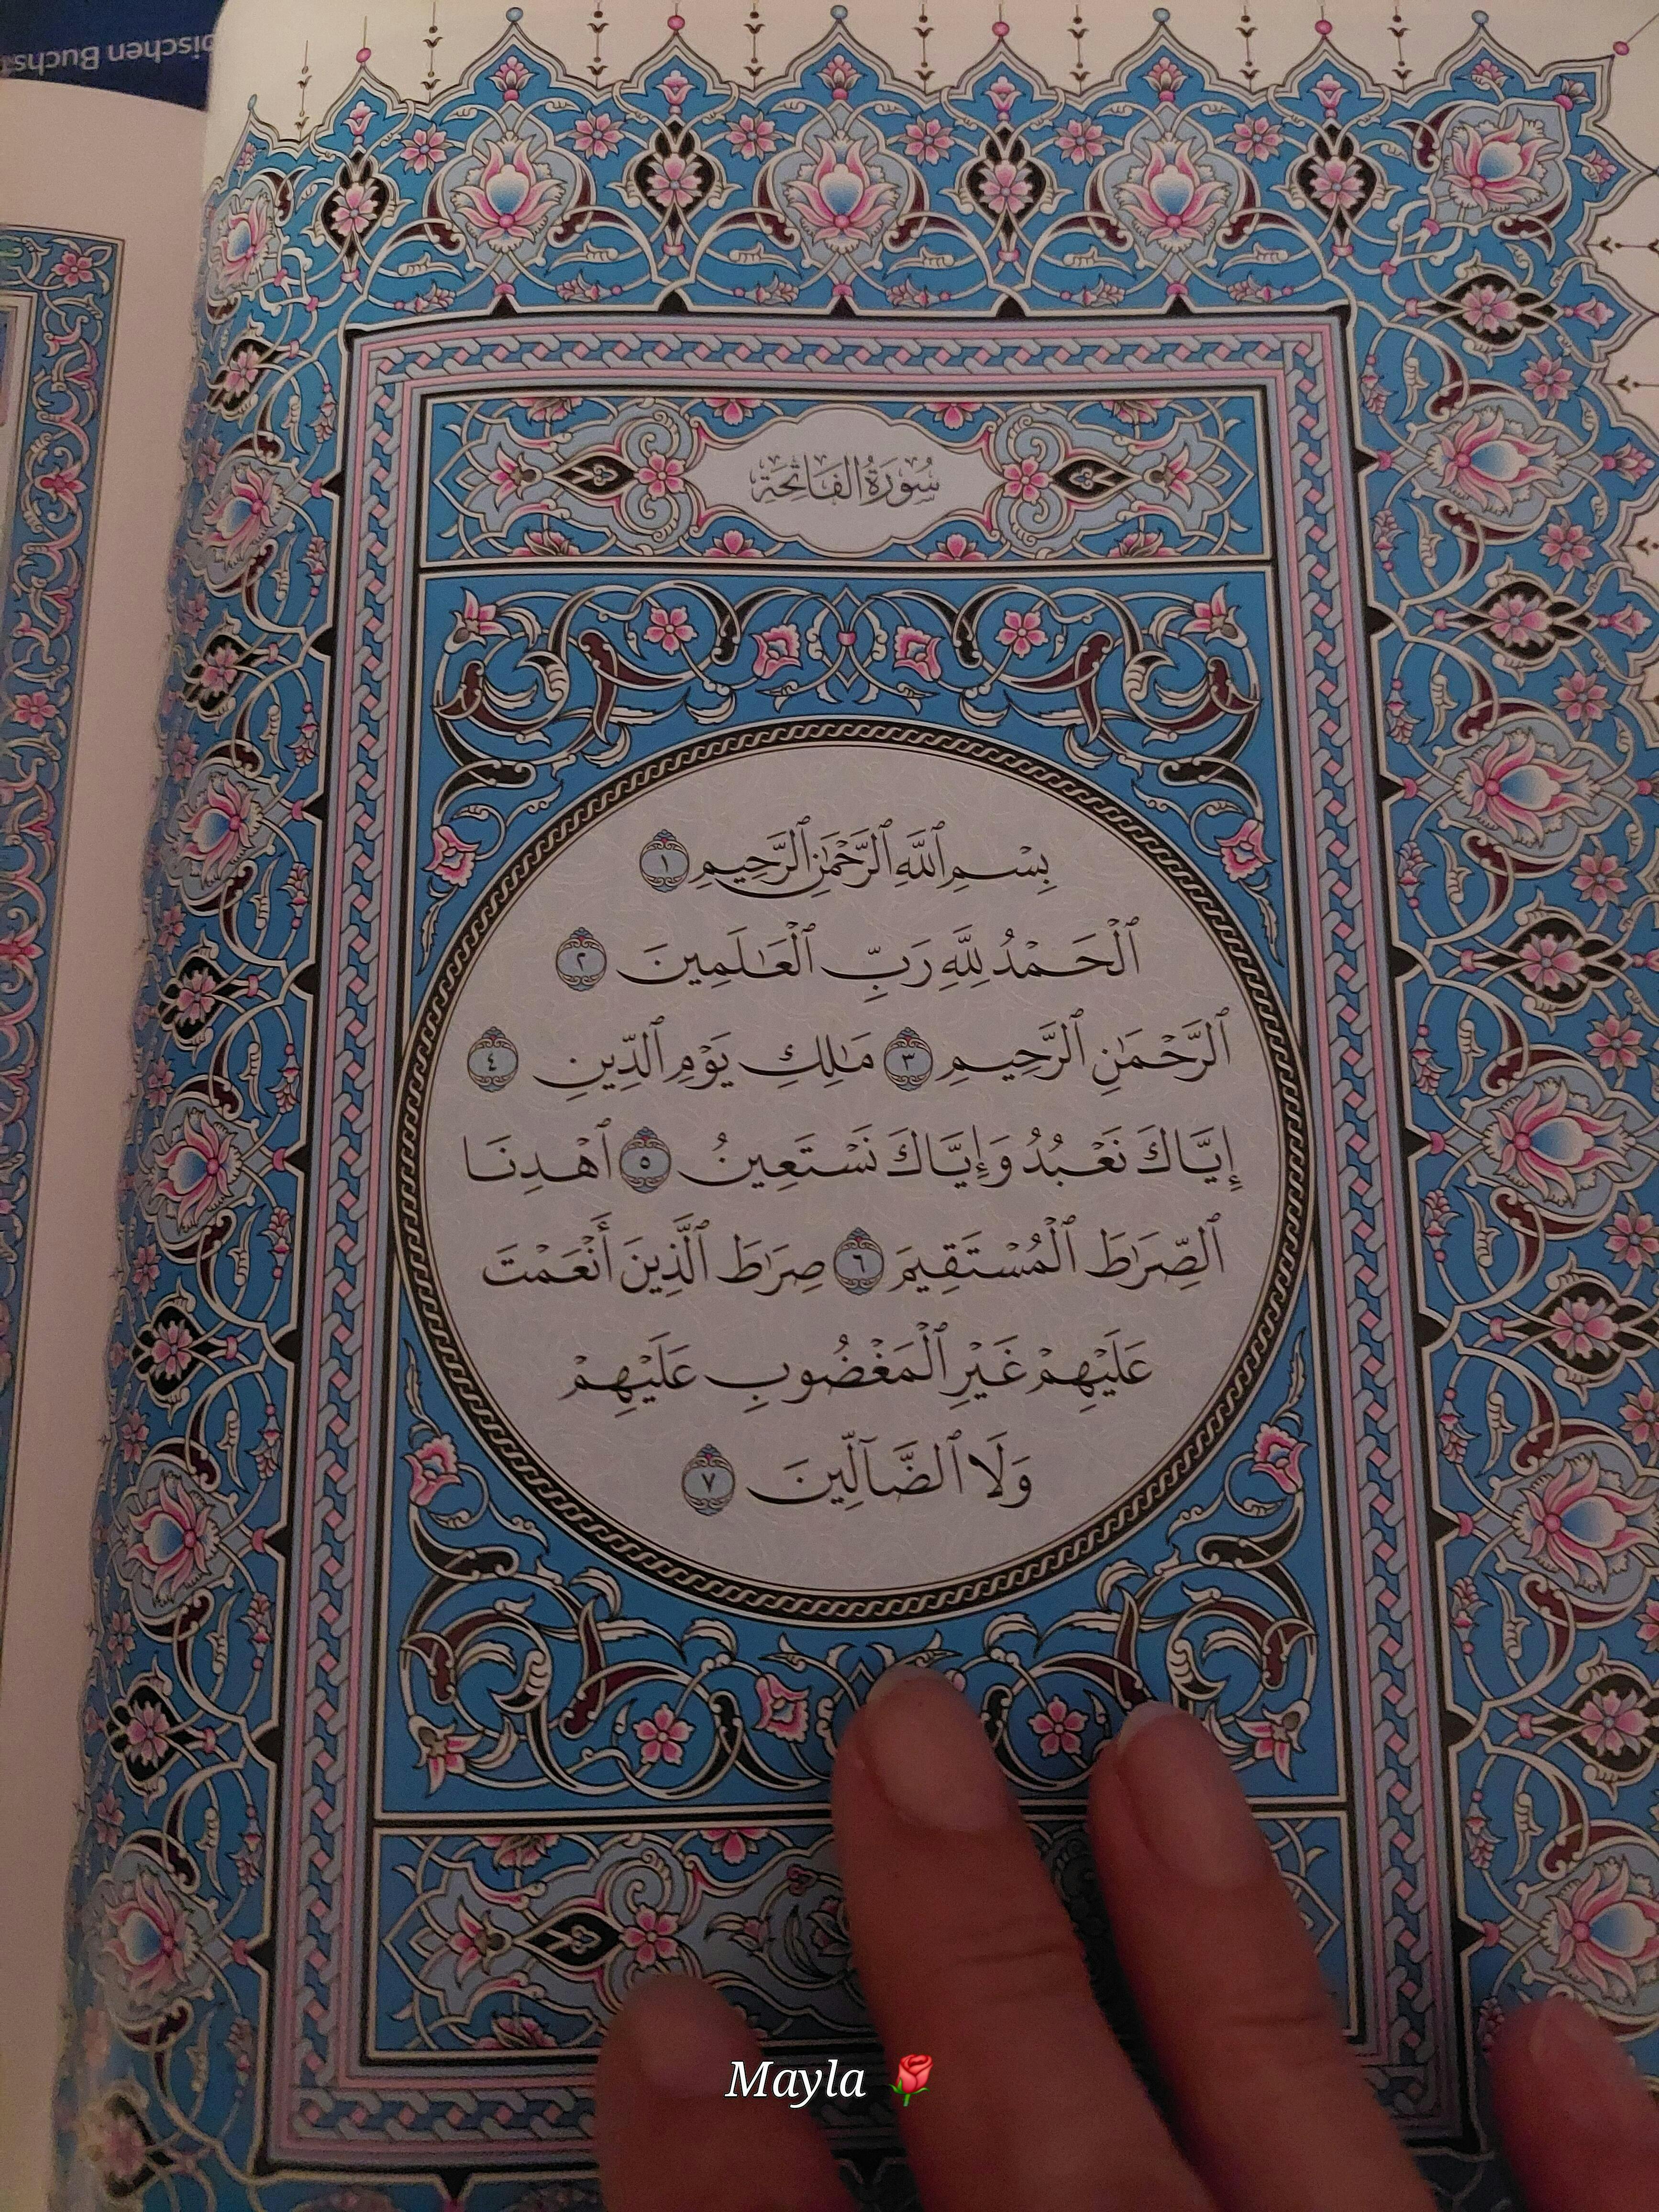 bischen Buchs
سُورَةُ الفَاتِحَةِ
بِسْمِ ٱللَّهِ ٱلرَّحْمَٰنِ ٱلرَّحِيمِ ١
ٱلْحَمْدُ لِلَّهِ رَبِّ ٱلْعَٰلَمِينَ ٢
ٱلرَّحْمَٰنِ ٱلرَّحِيمِ ٣ مَٰلِكِ يَوْمِ ٱلدِّينِ ٤
إِيَّاكَ نَعْبُدُ وَإِيَّاكَ نَسْتَعِينُ ٥ ٱهْدِنَا
ٱلصِّرَٰطَ ٱلْمُسْتَقِيمَ ٦ صِرَٰطَ ٱلَّذِينَ أَنْعَمْتَ
عَلَيْهِمْ غَيْرِ ٱلْمَغْضُوبِ عَلَيْهِمْ
وَلَا ٱلضَّآلِّينَ ٧
Mayla 🌹